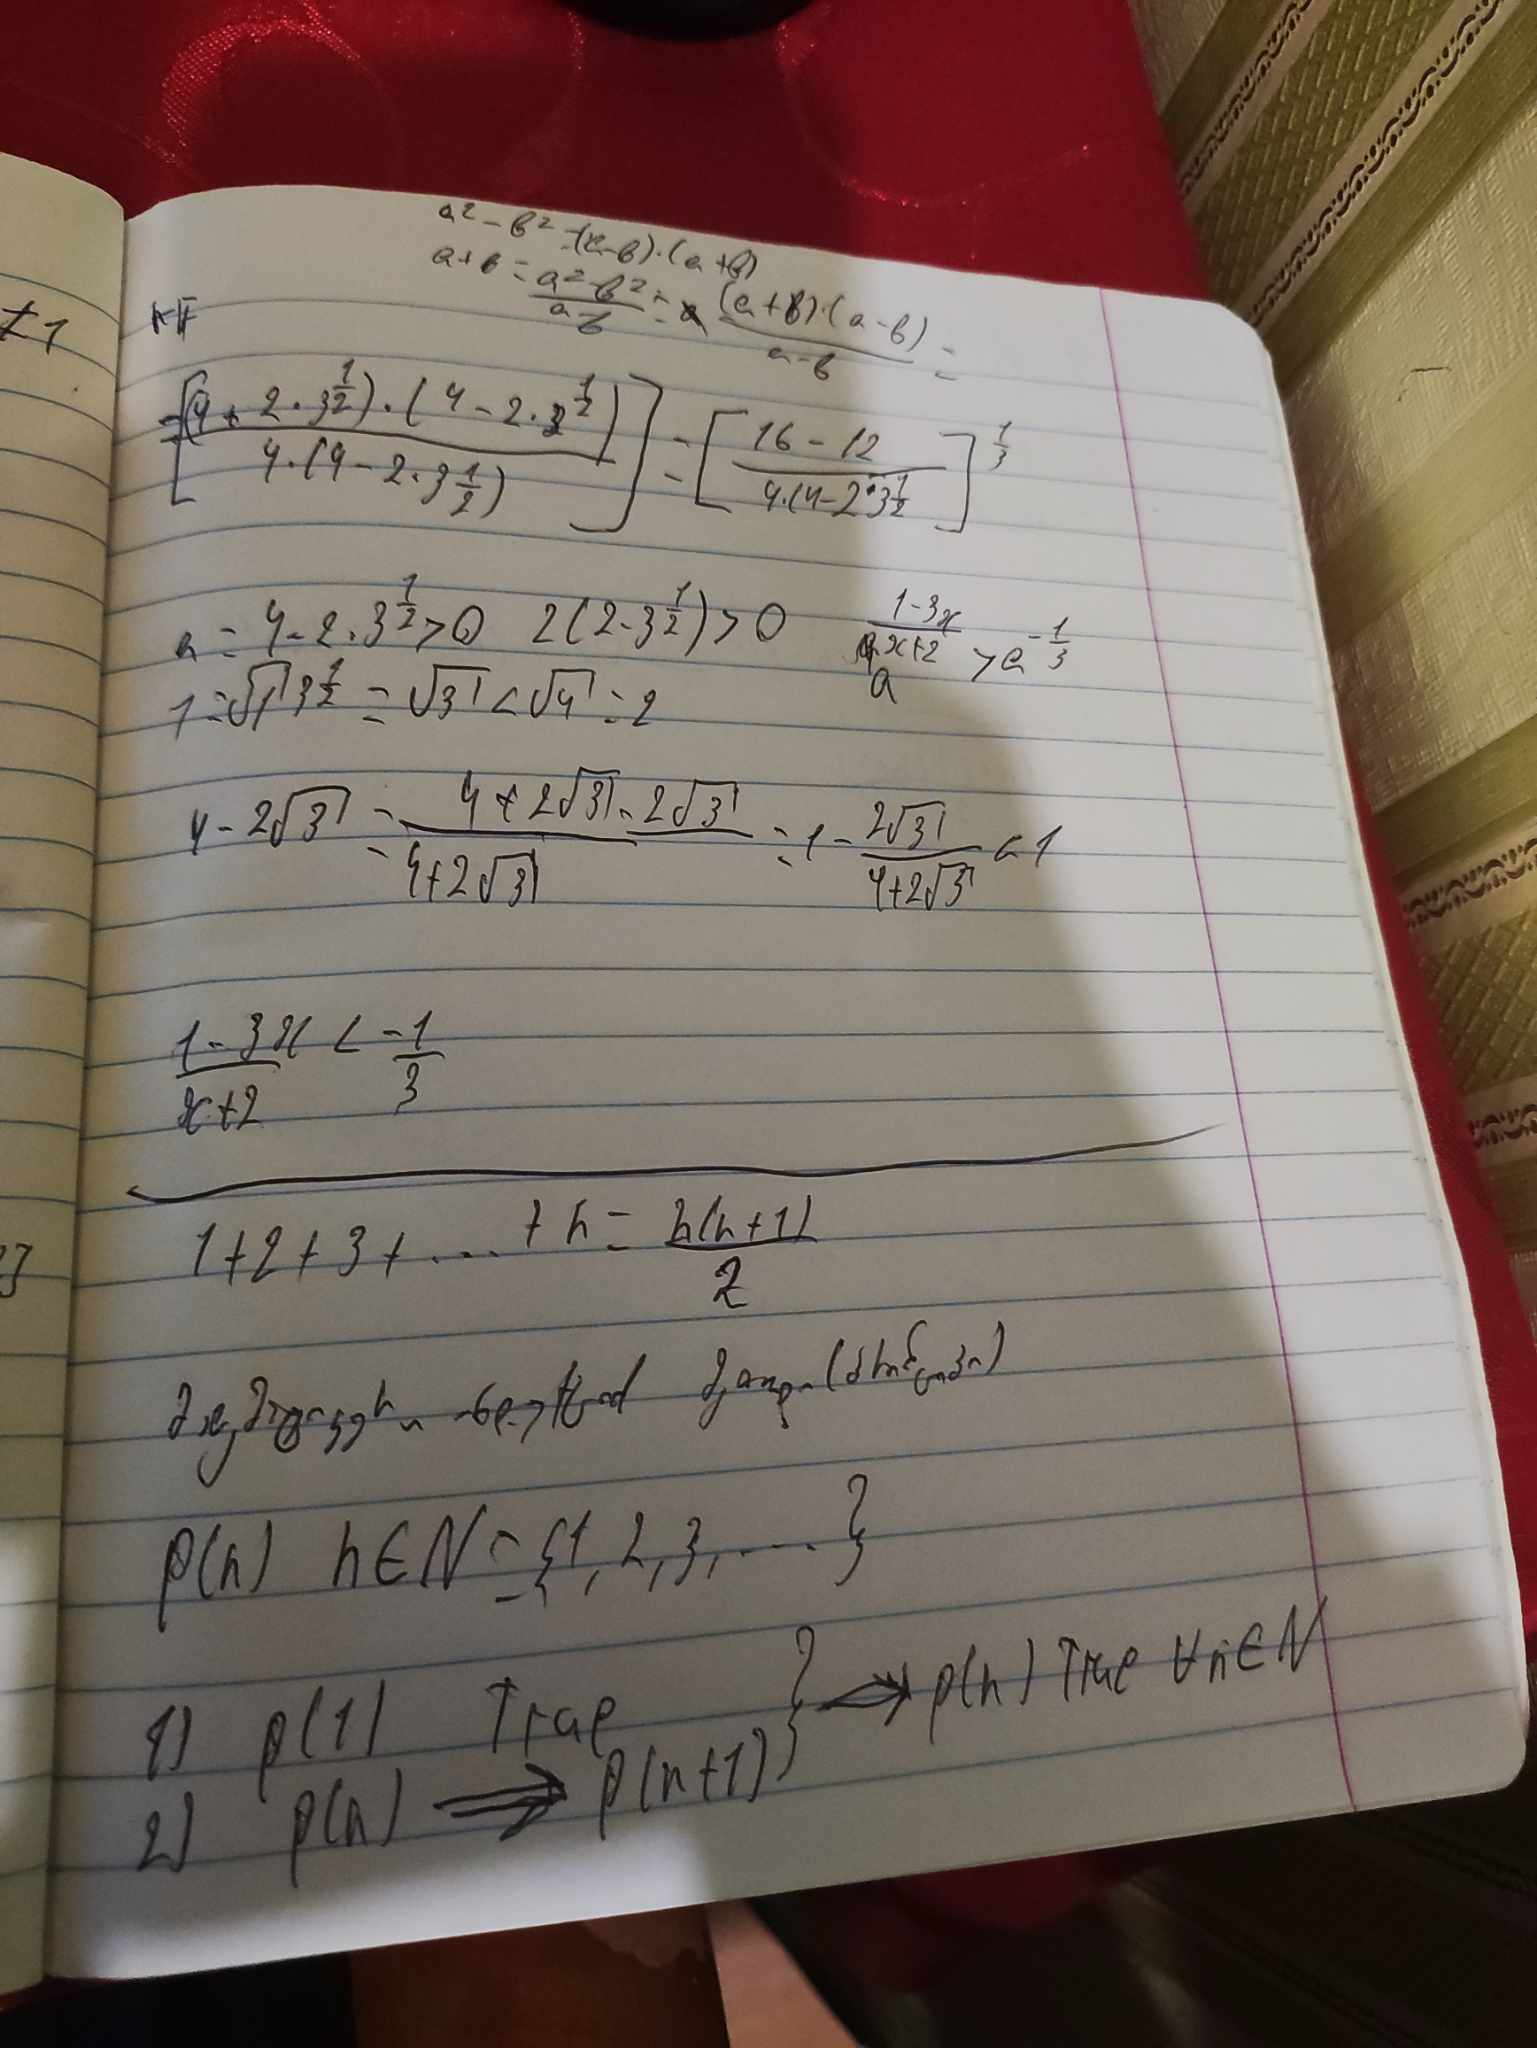 a² - b² = (a-b)·(a+b)
a+b = (a²-b²)/(a-b) = ((a+b)·(a-b))/(a-b) =
≠1
= [((4 + 2·3^(1/2))·(4 - 2·3^(1/2)))/(4·(4-2·3^(1/2)))] = [(16-12)/(4·(4-2·3^(1/2)))]^(1/3)
a = 4-2·3^(1/2) > 0 2(2-3^(1/2)) > 0 a^((1-3x)/(x+2)) > a^(-1/3)
1 = √1 3^(1/2) = √3 < √4 = 2
4-2√3 = (4+2√3-2√3)/(4+2√3) = 1 - (2√3)/(4+2√3) < 1
(1-3x)/(x+2) < -1/3
1+2+3+....+n = n(n+1)/2
P(n) n∈N = {1, 2, 3, ....}
1) P(1) True
2) P(n) ⟹ P(n+1) } ⟹ P(n) True ∀n∈N